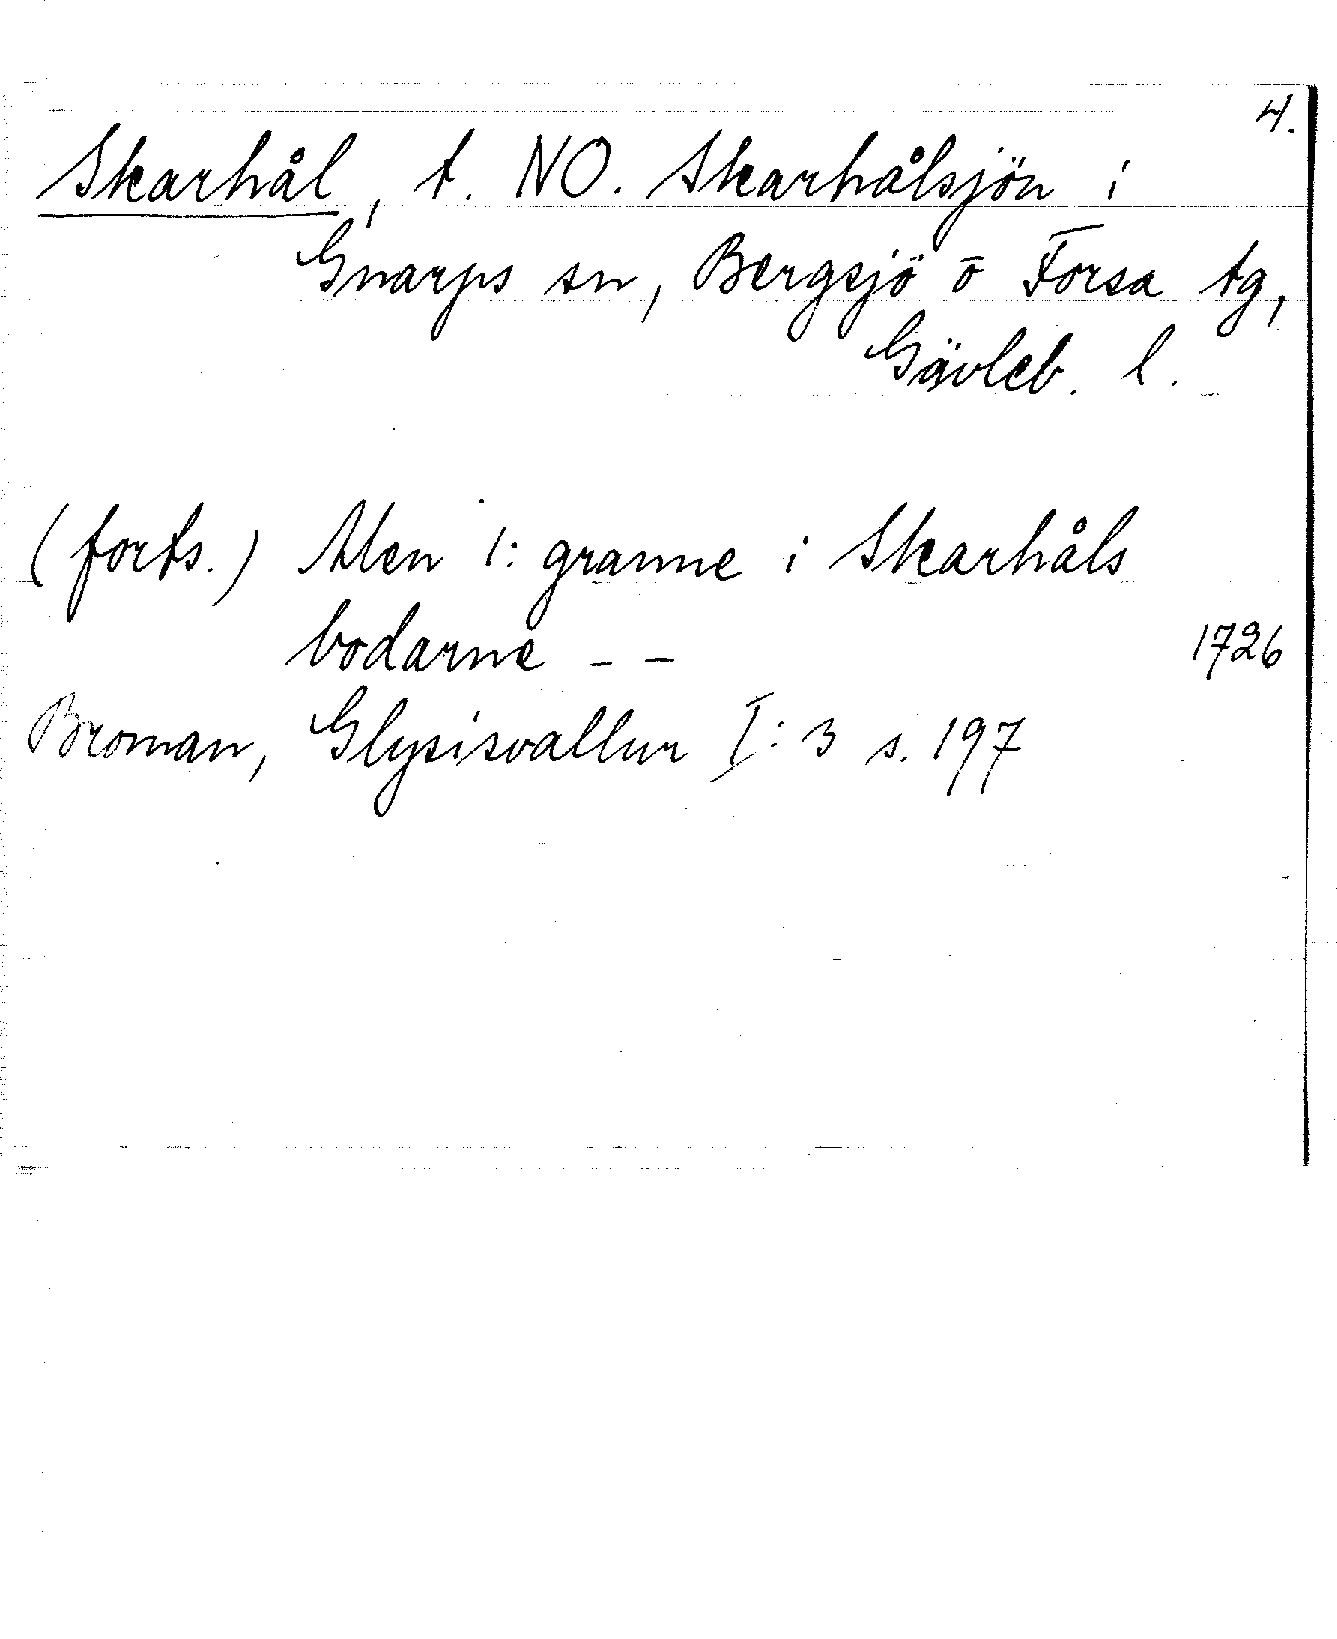 4.
Skarhål, t. NO. Skarhålsjön i
Gnarps sn, Bergsjö o Forsa tg,
Gävleb. l.
(forts.) Men 1: granne i Skarhåls
bodarne - -
1726
Broman, Glysisvallur I: 3 s. 197